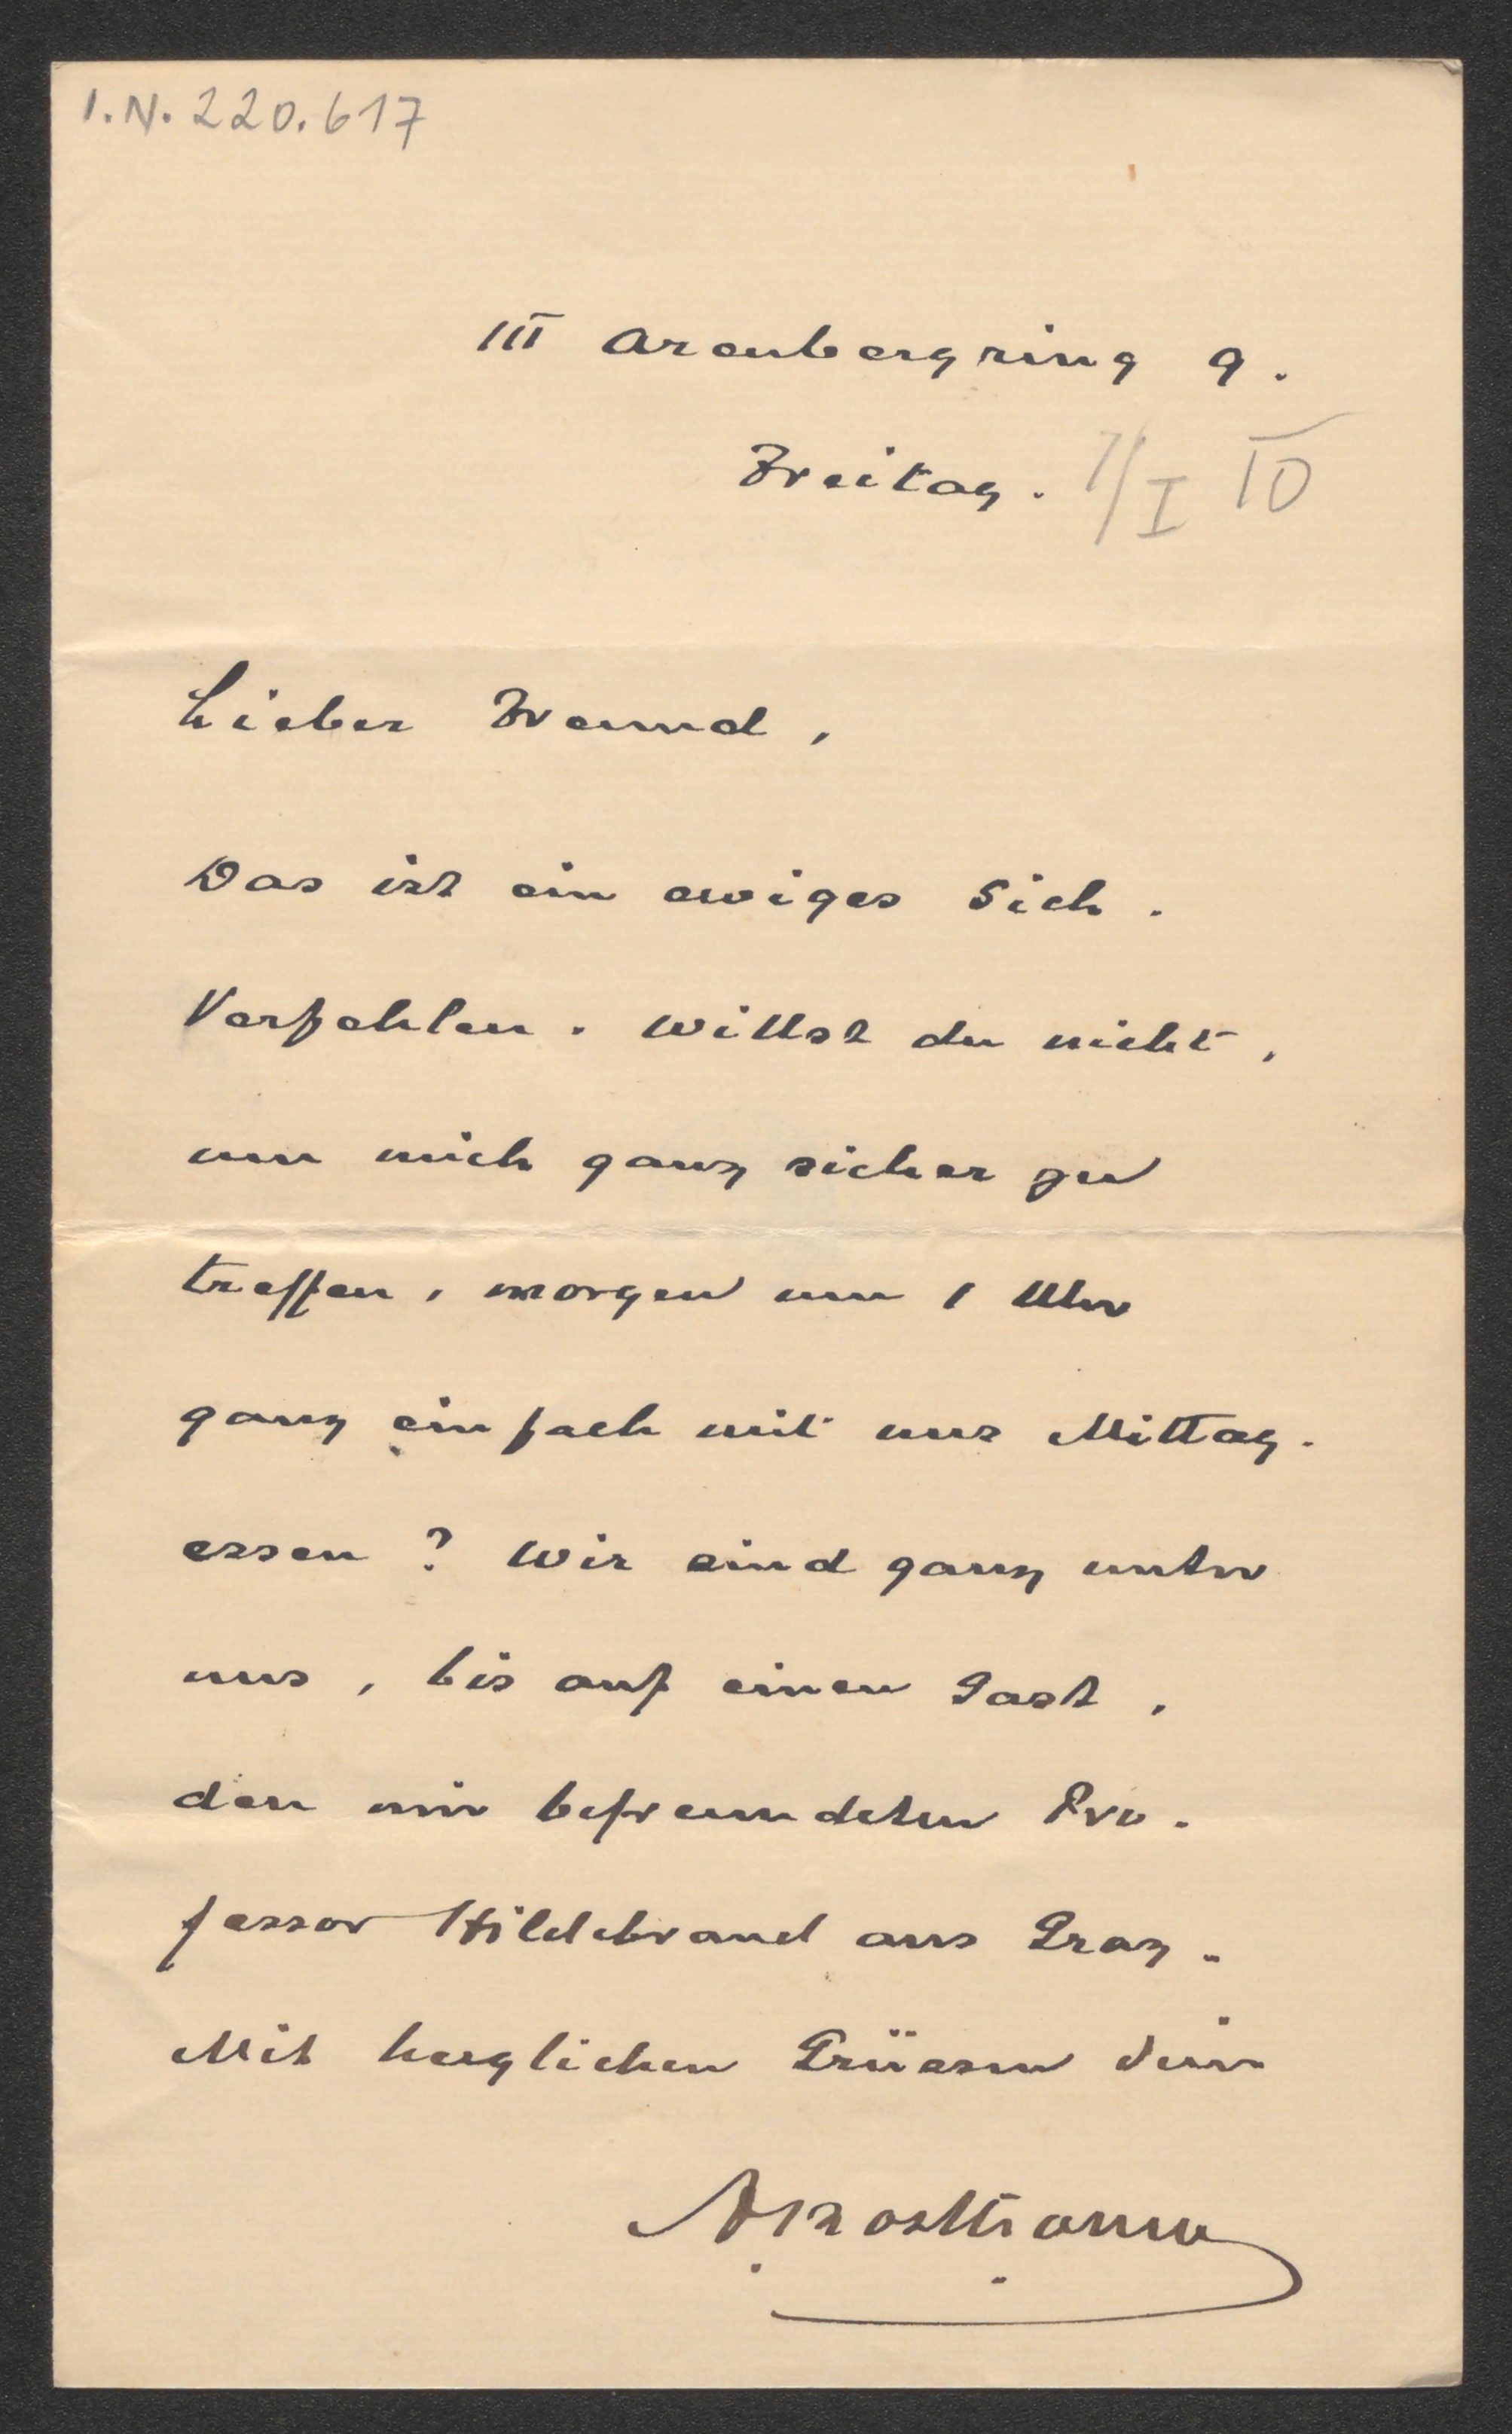 I.N. 220.617
III Arenbergring 9.
Freitag. 7/I 10
Lieber Freund,
Das ist ein ewiges Sich-
Verfehlen. Willst du nicht,
um mich ganz sicher zu
treffen, morgen um 1 Uhr
ganz einfach mit uns Mittag-
essen? Wir sind ganz unter
uns, bis auf einen Gast,
den mir befreundeten Pro-
fessor Hildebrand aus Graz.
Mit herzlichen Grüssen dein